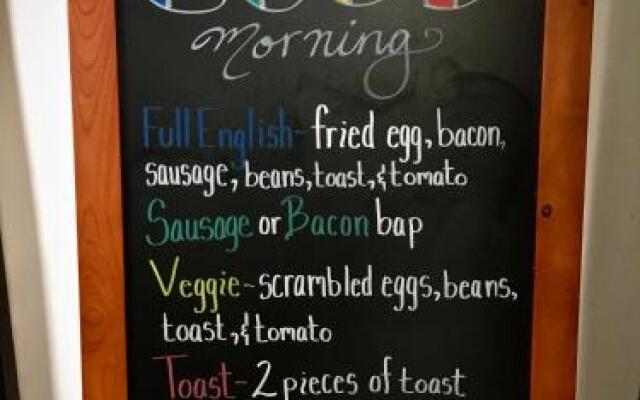 morning
Full English- fried egg, bacon,
sausage, beans, toast, & tomato
Sausage or Bacon bap
Veggie- scrambled eggs, beans,
toast, & tomato
Toast- 2 pieces of toast